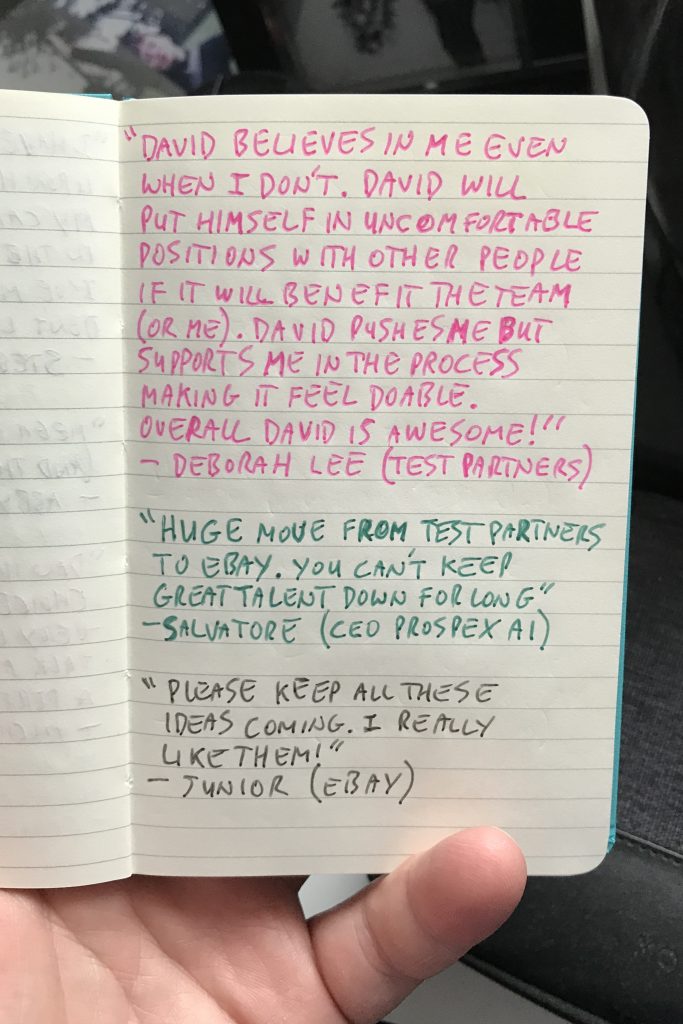 "DAVID BELIEVES IN ME EVEN
WHEN I DON'T. DAVID WILL
PUT HIMSELF IN UNCOMFORTABLE
POSITIONS WITH OTHER PEOPLE
IF IT WILL BENEFIT THE TEAM
(OR ME). DAVID PUSHES ME BUT
SUPPORTS ME IN THE PROCESS
MAKING IT FEEL DOABLE.
OVERALL DAVID IS AWESOME!"
- DEBORAH LEE (TEST PARTNERS)
"HUGE MOVE FROM TEST PARTNERS
TO EBAY. YOU CAN'T KEEP
GREAT TALENT DOWN FOR LONG"
-SALVATORE (CEO PROSPEX AI)
"PLEASE KEEP ALL THESE
IDEAS COMING. I REALLY
LIKE THEM!"
- JUNIOR (EBAY)